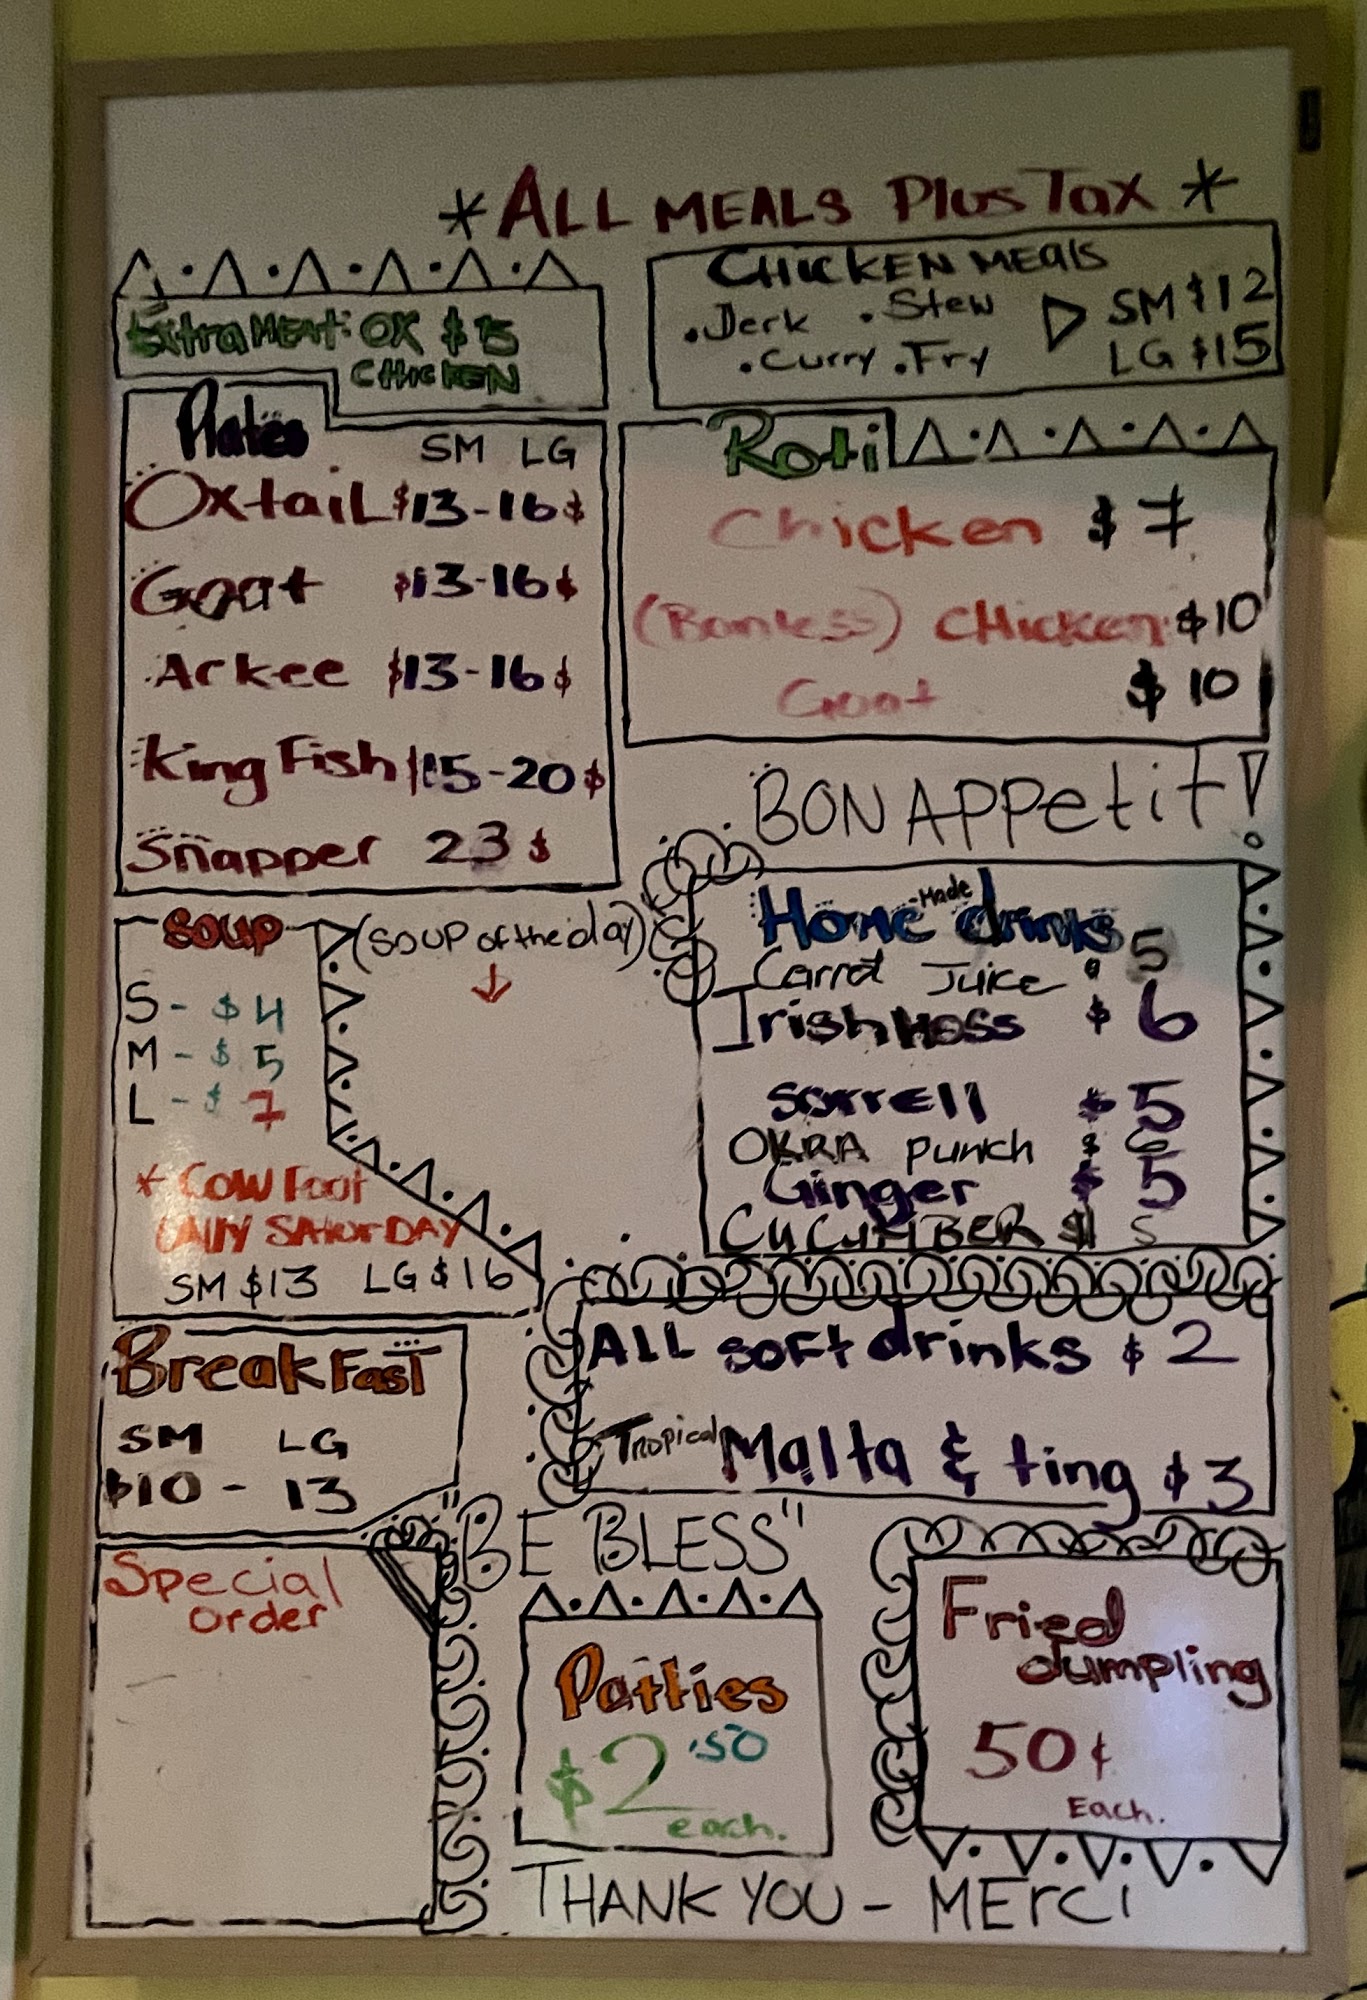 *ALL MEALS Plus Tax*
Extra MEAT: OX $5
CHICKEN
CHICKEN MEALS
.Jerk .Stew
.Curry .Fry
SM $12
LG $15
Plates SM LG
Oxtail $13-16$
Goat $13-16$
Ackee $13-16$
King Fish 15-20$
Snapper 23$
Roti
Chicken $7
(Bonless) CHicken $10
Goat $10
BON APPetit!
SOUP
S - $4
M - $5
L - $7
* COW Foot
ONly SATurDAY
SM $13 LG $16
(SOUP of the day)
Home-Made drinks
Carrot Juice $ 5
Irish Moss $ 6
Sorrell $ 5
OKRA punch $ 6
Ginger $ 5
CUCUMBER $ 5
ALL SOFT drinks $2
Tropical Malta & ting $3
BreakFast
SM LG
$10 - 13
"BE BLESS"
Special
order
Patties
$2.50
each.
Fried
dumpling
50¢
Each.
THANK YOU - MErci